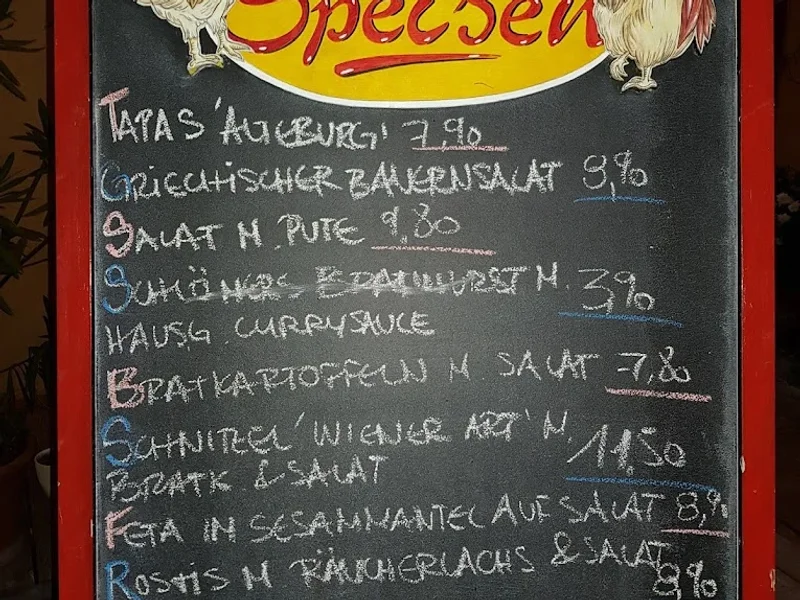 Speisen
TAPAS 'ALTEBURG' 7,90
GRIECHISCHER BAUERNSALAT 8,90
SALAT M. PUTE 9,80
SCHÖNERS BRATWURST M. 3,90
HAUSG. CURRYSAUCE
BRATKARTOFFELN M SALAT 7,80
SCHNITZEL 'WIENER ART' M. 11,50
BRATK & SALAT
FETA IN SESAMMANTEL AUF SALAT 8,90
ROSTIS M RÄUCHERLACHS & SALAT
8,90